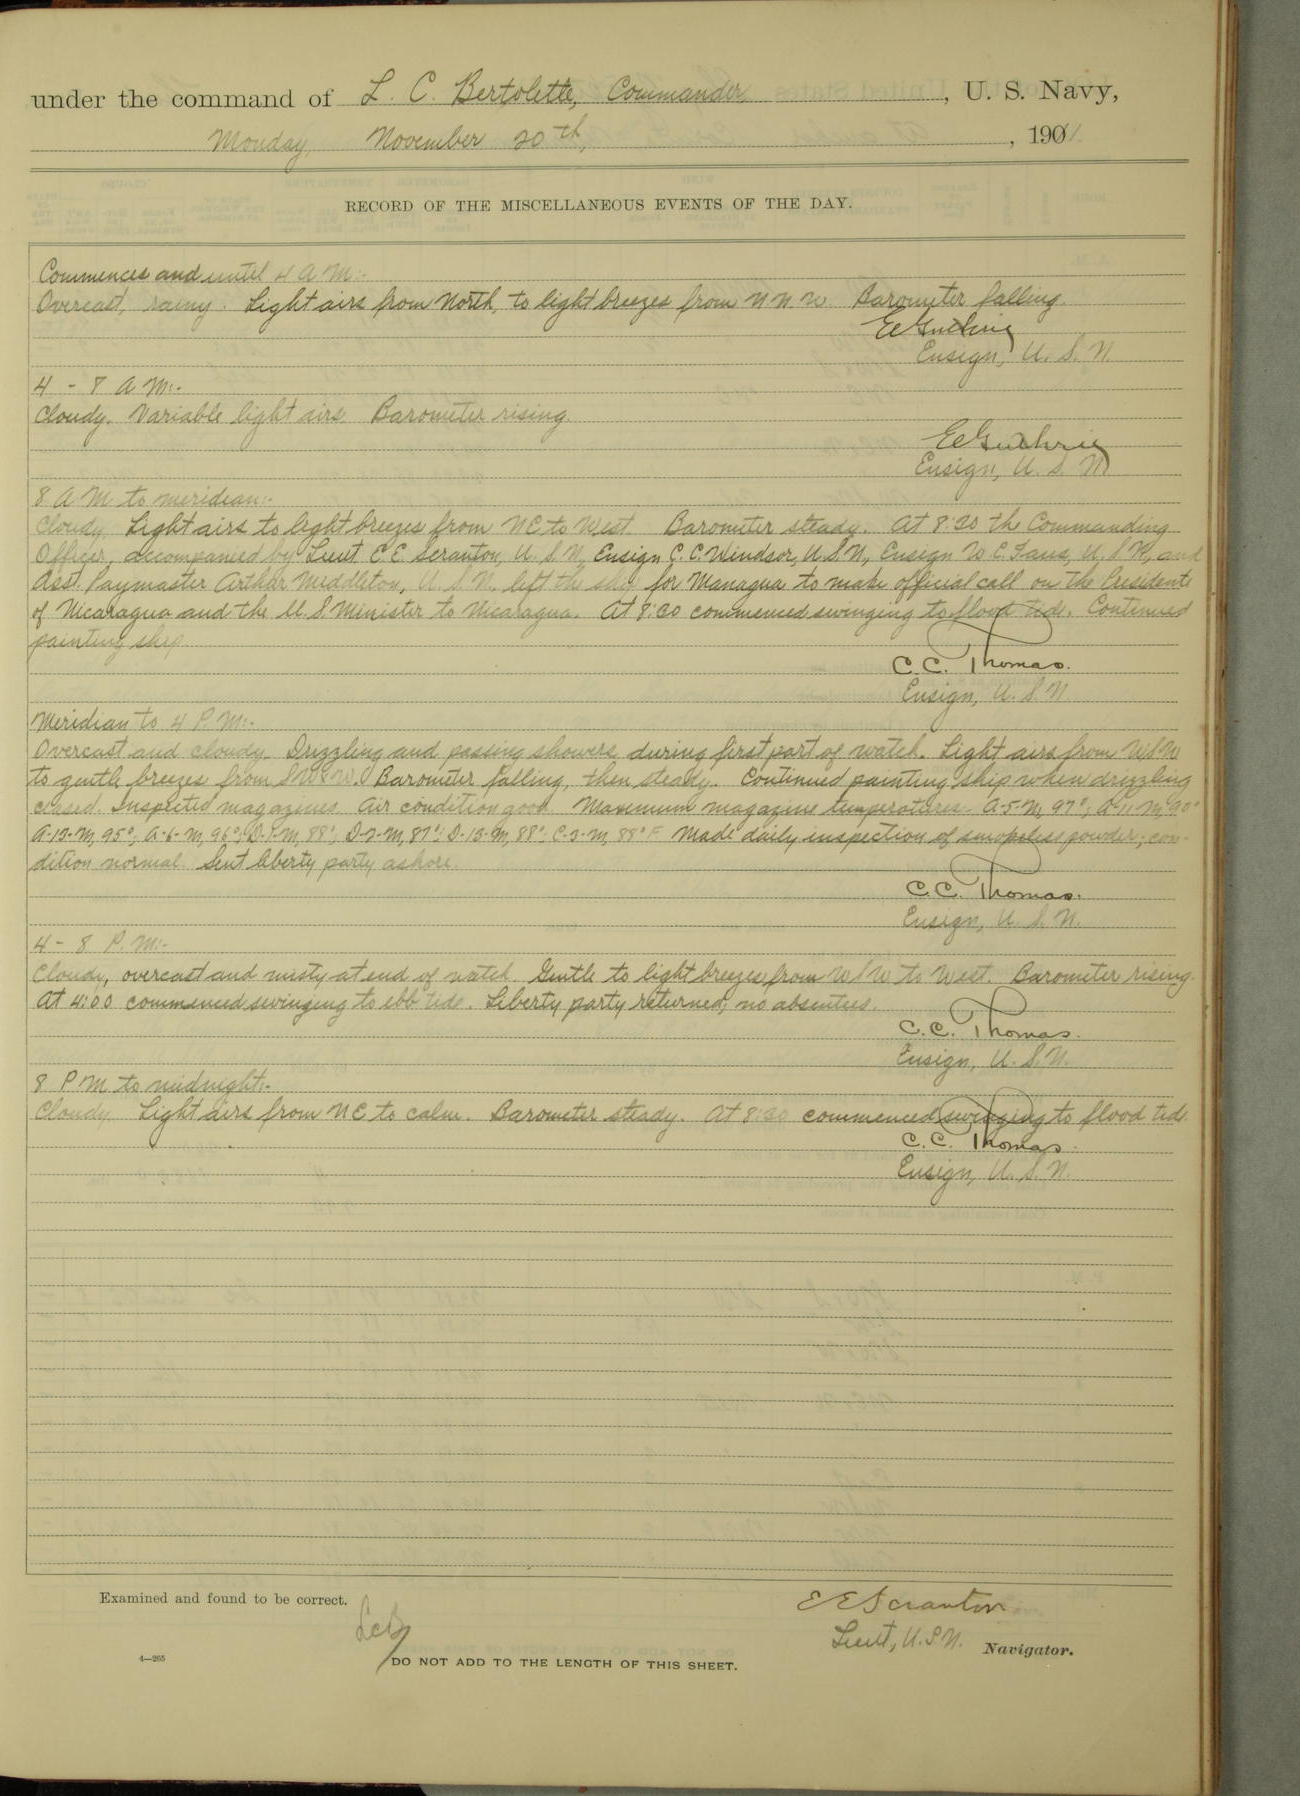 under the command of L. C. Bertolette, Commander, U. S. Navy,
Monday, November 20th, 1901
RECORD OF THE MISCELLANEOUS EVENTS OF THE DAY.
Commences and until 4 A M:-
Overcast, rainy. Light airs from North, to light breezes from N N W. Barometer falling.
E Guthrie
Ensign, U. S. N.
4 - 8 A M:-
Cloudy. Variable light airs. Barometer rising.
E Guthrie
Ensign, U. S. N.
8 A M to meridian:-
Cloudy. Light airs to light breezes from NE to West. Barometer steady. At 8:20 the Commanding
Officer, accompanied by Lieut E E Scranton, U. S. N., Ensign C. C. Windsor, U. S. N., Ensign W C Faus, U. S. N., and
Asst. Paymaster Arthur Middleton, U. S. N. left the ship for Managua to make official call on the President
of Nicaragua and the U. S. Minister to Nicaragua. At 8:30 commenced swinging to flood tide. Continued
painting ship.
C. C. Thomas.
Ensign, U. S. N.
Meridian to 4 P. M:-
Overcast and cloudy. Drizzling and passing showers during first part of watch. Light airs from WSW
to gentle breezes from Barometer falling, then steady. Continued painting ship when drizzling
ceased. Inspected magazines. Air condition good. Maximum magazine temperatures- A-5-M, 97°; A-11-M, 90°
A-13-M, 95°; A-6-M, 96°; D-1-M, 88°; D-2-M, 87°; D-13-M, 88°; C-3-M, 88° F. Made daily inspection of smokeless powder; con-
dition normal. Sent liberty party ashore.
C. C. Thomas.
Ensign, U. S. N.
4 - 8 P. M:-
Cloudy, overcast and misty at end of watch. Gentle to light breezes from WSW to West. Barometer rising.
At 4:00 commenced swinging to ebb tide. Liberty party returned; no absentees.
C. C. Thomas.
Ensign, U. S. N.
8 P M to midnight:-
Cloudy. Light airs from NE to calm. Barometer steady. At 8:30 commenced swinging to flood tide.
C. C. Thomas.
Ensign, U. S. N.
Examined and found to be correct.
LCB
E E Scranton
Lieut, U. S. N. Navigator.
4—265
DO NOT ADD TO THE LENGTH OF THIS SHEET.